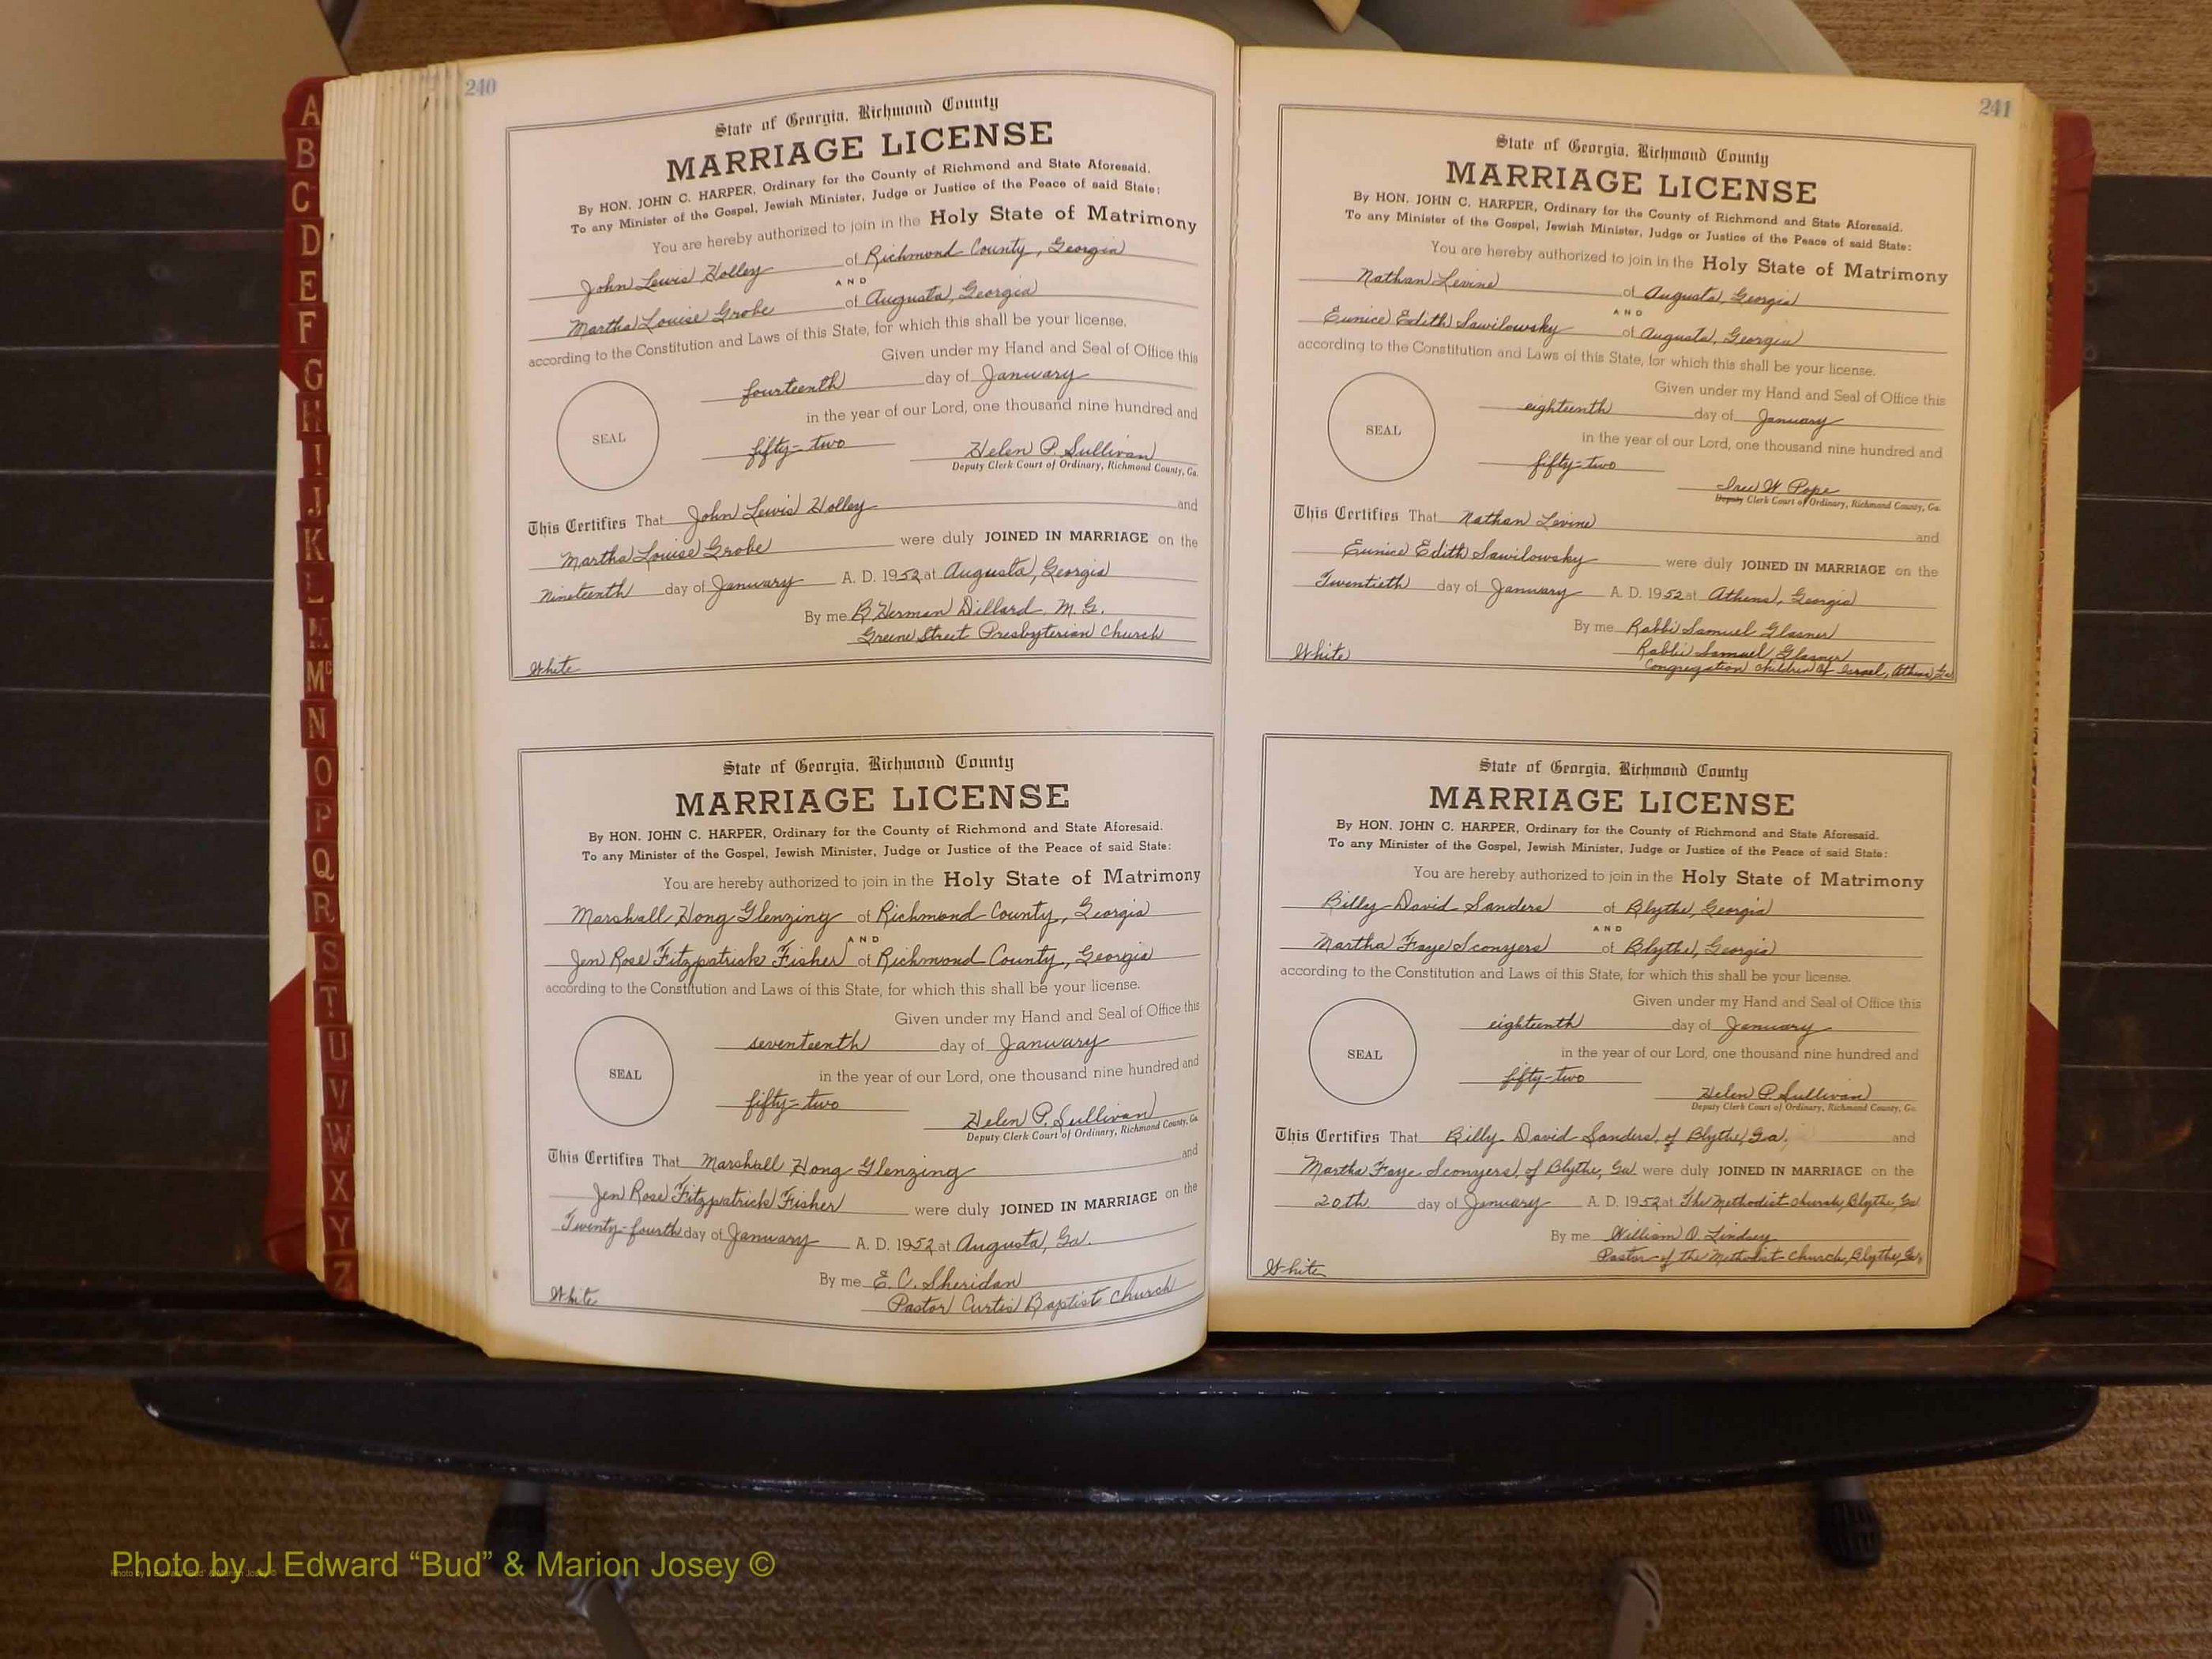 A
B
C
D
E
F
G
H
I
J
K
L
M
Mc
N
O
P
Q
R
S
T
U
V
W
X
Y
Z
240
State of Georgia, Richmond County
MARRIAGE LICENSE
By HON. JOHN C. HARPER, Ordinary for the County of Richmond and State Aforesaid.
To any Minister of the Gospel, Jewish Minister, Judge or Justice of the Peace of said State:
You are hereby authorized to join in the Holy State of Matrimony
John Lewis Holley of Richmond County, Georgia
AND
Martha Louise Grobe of Augusta, Georgia
according to the Constitution and Laws of this State, for which this shall be your license.
Given under my Hand and Seal of Office this
fourteenth day of January
in the year of our Lord, one thousand nine hundred and
SEAL
fifty-two Helen P. Sullivan
Deputy Clerk Court of Ordinary, Richmond County, Ga.
This Certifies That John Lewis Holley and
Martha Louise Grobe were duly JOINED IN MARRIAGE on the
Nineteenth day of January A. D. 1952 at Augusta, Georgia
By me B. Herman Dillard M. G.
Greene Street Presbyterian Church
White
State of Georgia, Richmond County
MARRIAGE LICENSE
By HON. JOHN C. HARPER, Ordinary for the County of Richmond and State Aforesaid.
To any Minister of the Gospel, Jewish Minister, Judge or Justice of the Peace of said State:
You are hereby authorized to join in the Holy State of Matrimony
Marshall Hong Glenzing of Richmond County, Georgia
AND
Jen Rose Fitzpatrick Fisher of Richmond County, Georgia
according to the Constitution and Laws of this State, for which this shall be your license.
Given under my Hand and Seal of Office this
seventeenth day of January
in the year of our Lord, one thousand nine hundred and
SEAL
fifty-two Helen P. Sullivan
Deputy Clerk Court of Ordinary, Richmond County, Ga.
This Certifies That Marshall Hong Glenzing and
Jen Rose Fitzpatrick Fisher were duly JOINED IN MARRIAGE on the
Twenty-fourth day of January A. D. 1952 at Augusta, Ga.
By me E. C. Sheridan
Pastor Curtis Baptist Church
White
241
State of Georgia, Richmond County
MARRIAGE LICENSE
By HON. JOHN C. HARPER, Ordinary for the County of Richmond and State Aforesaid.
To any Minister of the Gospel, Jewish Minister, Judge or Justice of the Peace of said State:
You are hereby authorized to join in the Holy State of Matrimony
Nathan Levine of Augusta, Georgia
AND
Eunice Edith Sawilowsky of Augusta, Georgia
according to the Constitution and Laws of this State, for which this shall be your license.
Given under my Hand and Seal of Office this
eighteenth day of January
in the year of our Lord, one thousand nine hundred and
SEAL
fifty-two
W. Pope
Deputy Clerk Court of Ordinary, Richmond County, Ga.
This Certifies That Nathan Levine and
Eunice Edith Sawilowsky were duly JOINED IN MARRIAGE on the
Twentieth day of January A. D. 1952 at Athens, Georgia
By me Rabbi Samuel Glasner
Rabbi Samuel Glasner
Congregation Children of Israel, Athens, Ga
White
State of Georgia, Richmond County
MARRIAGE LICENSE
By HON. JOHN C. HARPER, Ordinary for the County of Richmond and State Aforesaid.
To any Minister of the Gospel, Jewish Minister, Judge or Justice of the Peace of said State:
You are hereby authorized to join in the Holy State of Matrimony
Billy David Sanders of Blythe, Georgia
AND
Martha Faye Sconyers of Blythe, Georgia
according to the Constitution and Laws of this State, for which this shall be your license.
Given under my Hand and Seal of Office this
eighteenth day of January
in the year of our Lord, one thousand nine hundred and
SEAL
fifty-two
Helen P. Sullivan
Deputy Clerk Court of Ordinary, Richmond County, Ga.
This Certifies That Billy David Sanders, of Blythe, Ga. and
Martha Faye Sconyers, of Blythe, Ga. were duly JOINED IN MARRIAGE on the
20th day of January A. D. 1952 at The Methodist Church, Blythe, Ga
By me William O. Lindsey
Pastor of the Methodist Church, Blythe, Ga,
White
Photo by J Edward “Bud” & Marion Josey ©
Photo by J Edward "Bud" & Marion Josey ©